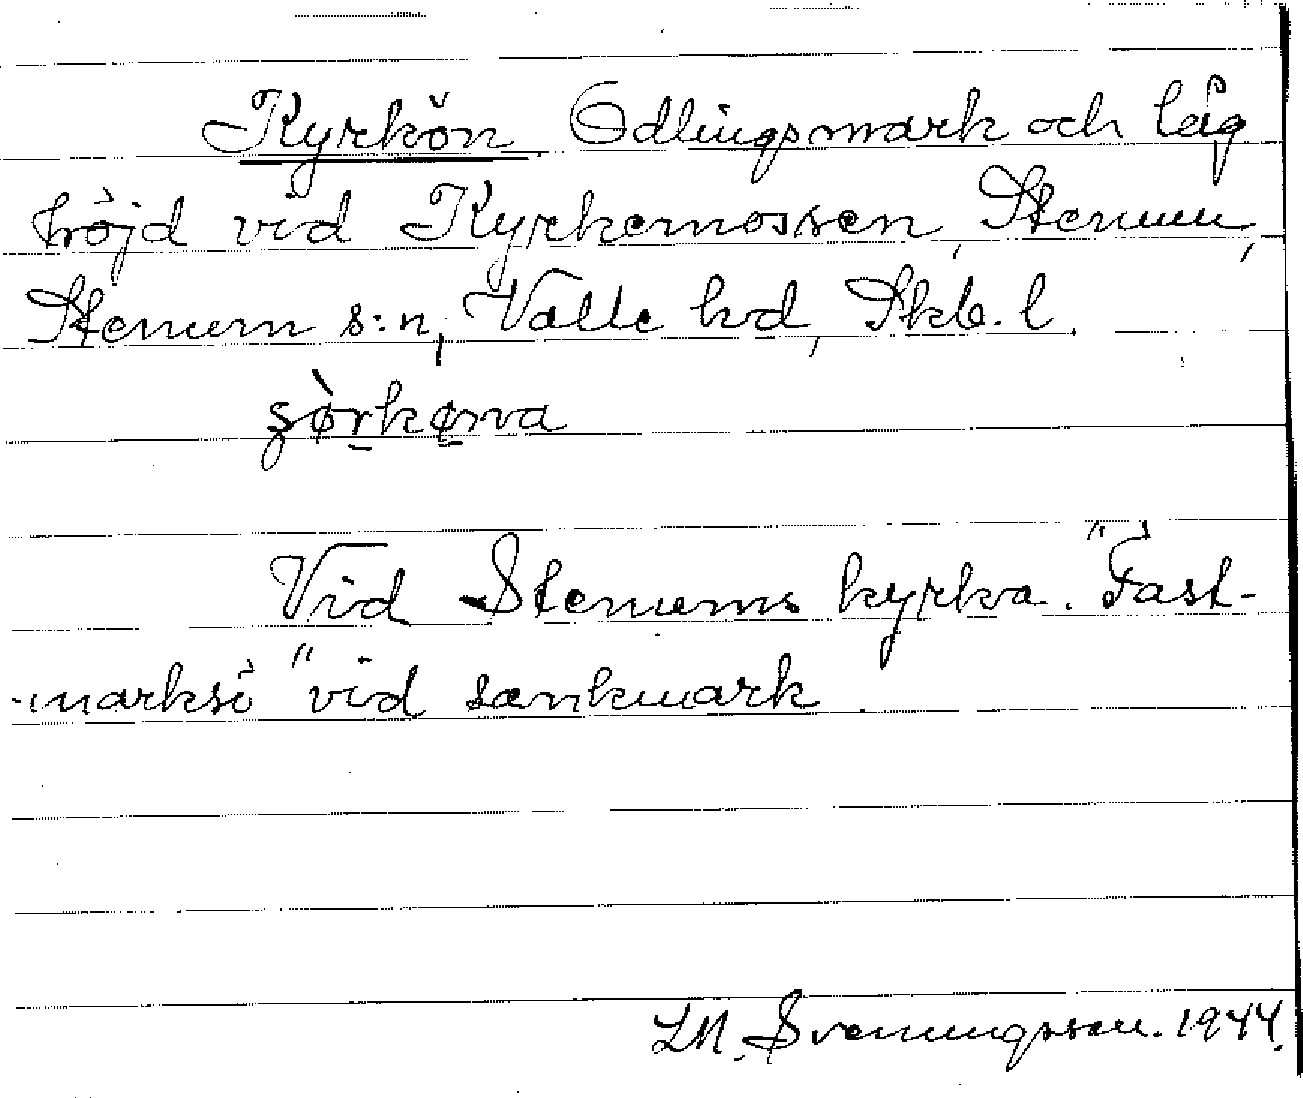 Kyrkön. Odlingsmark och låg
höjd vid Kyrkemossen, Stenum,
Stenum s:n, Valle hd, Skb. l.
Vid Stenums kyrka. "Fast-
marksö" vid sankmark.
LM. Svenungsson. 1944.